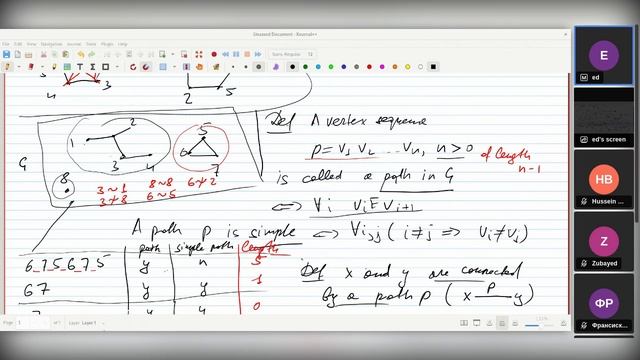 Unsaved Document - Xournal++
File Edit View Navigation Journal Tools Plugin Help
4 3
2 5
Def A vertex sequence
p = v₁ v₂ ... vₙ, n > 0
of length n-1
is called a path in G
⇔ ∀i vᵢ E vᵢ₊₁
G
1 2 3 4
5 6 7
8
3 ~ 1 8 ~ 8 6 ≁ 2
3 ≁ 8 6 ~ 5
A path p is simple ⇔ ∀i,j (i≠j ⇒ vᵢ≠vⱼ)
path simple path length
6 7 5 6 7 5 y n 5
6 7 y y 1
y y 0
Def x and y are connected
by a path p (x —p— y)
Page 1 of 1 Layer Layer 1
E
ed
ed's screen
HB
Hussein
Z
Zubayed
ФР